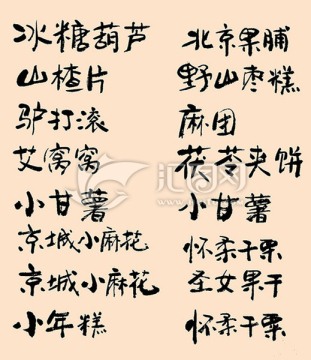 冰糖葫芦
山楂片
驴打滚
艾窝窝
小甘薯
京城小麻花
京城小麻花
小年糕
北京果脯
野山枣糕
麻团
茯苓夹饼
小甘薯
怀柔干栗
圣女果干
怀柔干栗
汇图网